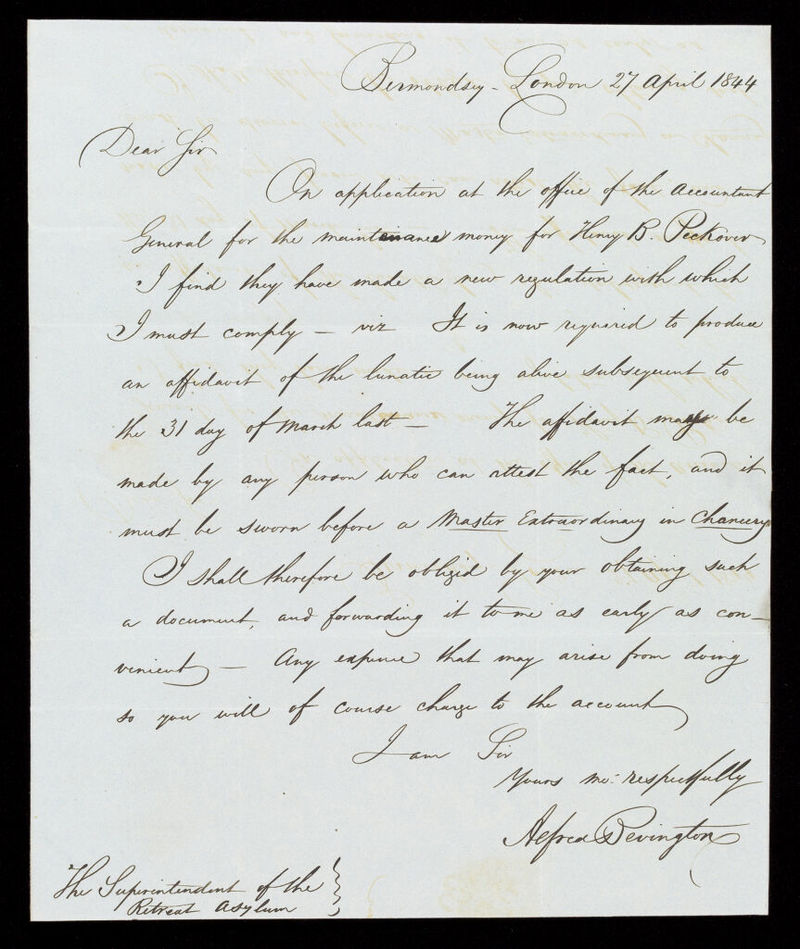 Bermondsey - London 27 April 1844
Dear Sir
On application at the office of the Accountant
General for the maintenance money for Henry B. Peckover
I find they have made a new regulation with which
I must comply — viz It is now required to produce
an affidavit of the lunatic being alive subsequent to
the 31 day of March last — The affidavit may be
made by any person who can attest the fact, and it
must be sworn before a Master Extraordinary in Chancery
I shall therefore be obliged by your obtaining such
a document, and forwarding it to me as early as con-
venient — Any expence that may arise from doing
so you will of course charge to the account
I am Sir
Yours mo: respectfully
Alfred Bevington
The Superintendent of the
Retreat Asylum